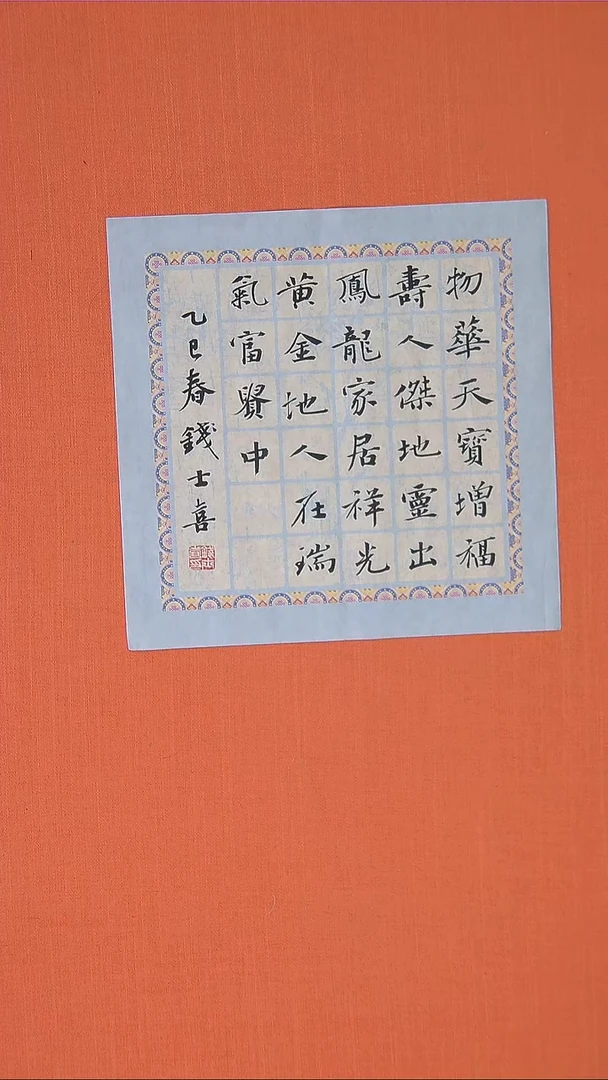 物華天寶增福
壽人傑地靈出
鳳龍家居祥光
黃金地人在瑞
氣富賢中
乙巳春錢士喜